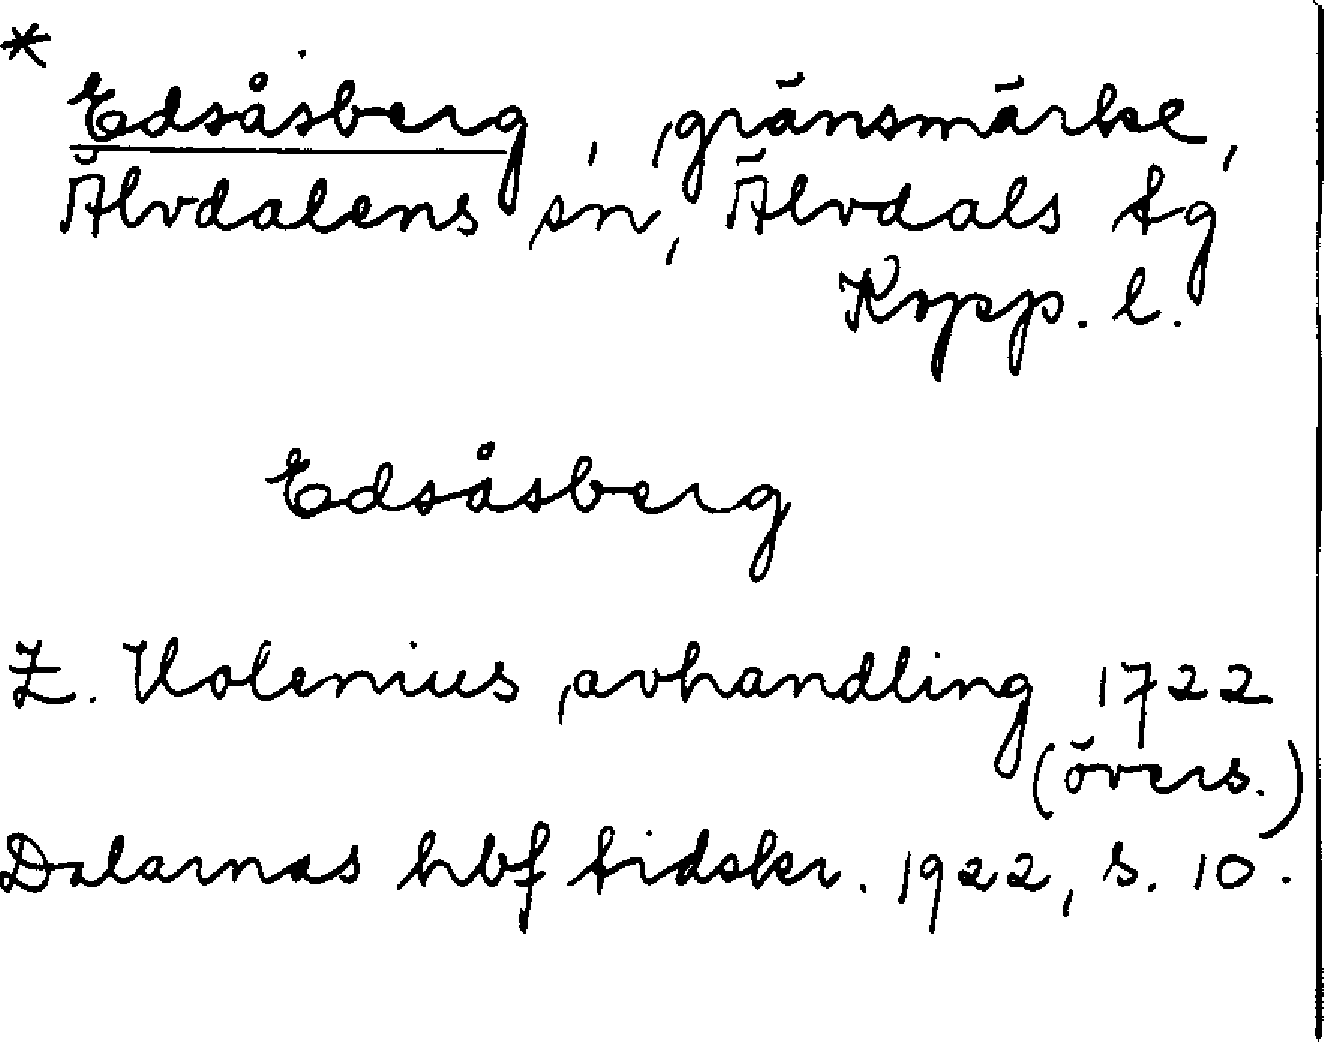 *
Edsåsberg, gränsmärke,
Älvdalens sn, Älvdals tg
Kopp. l.
Edsåsberg
Z. Holenius, avhandling 1722
(övers.)
Dalarnas hbf tidskr. 1922, s. 10.